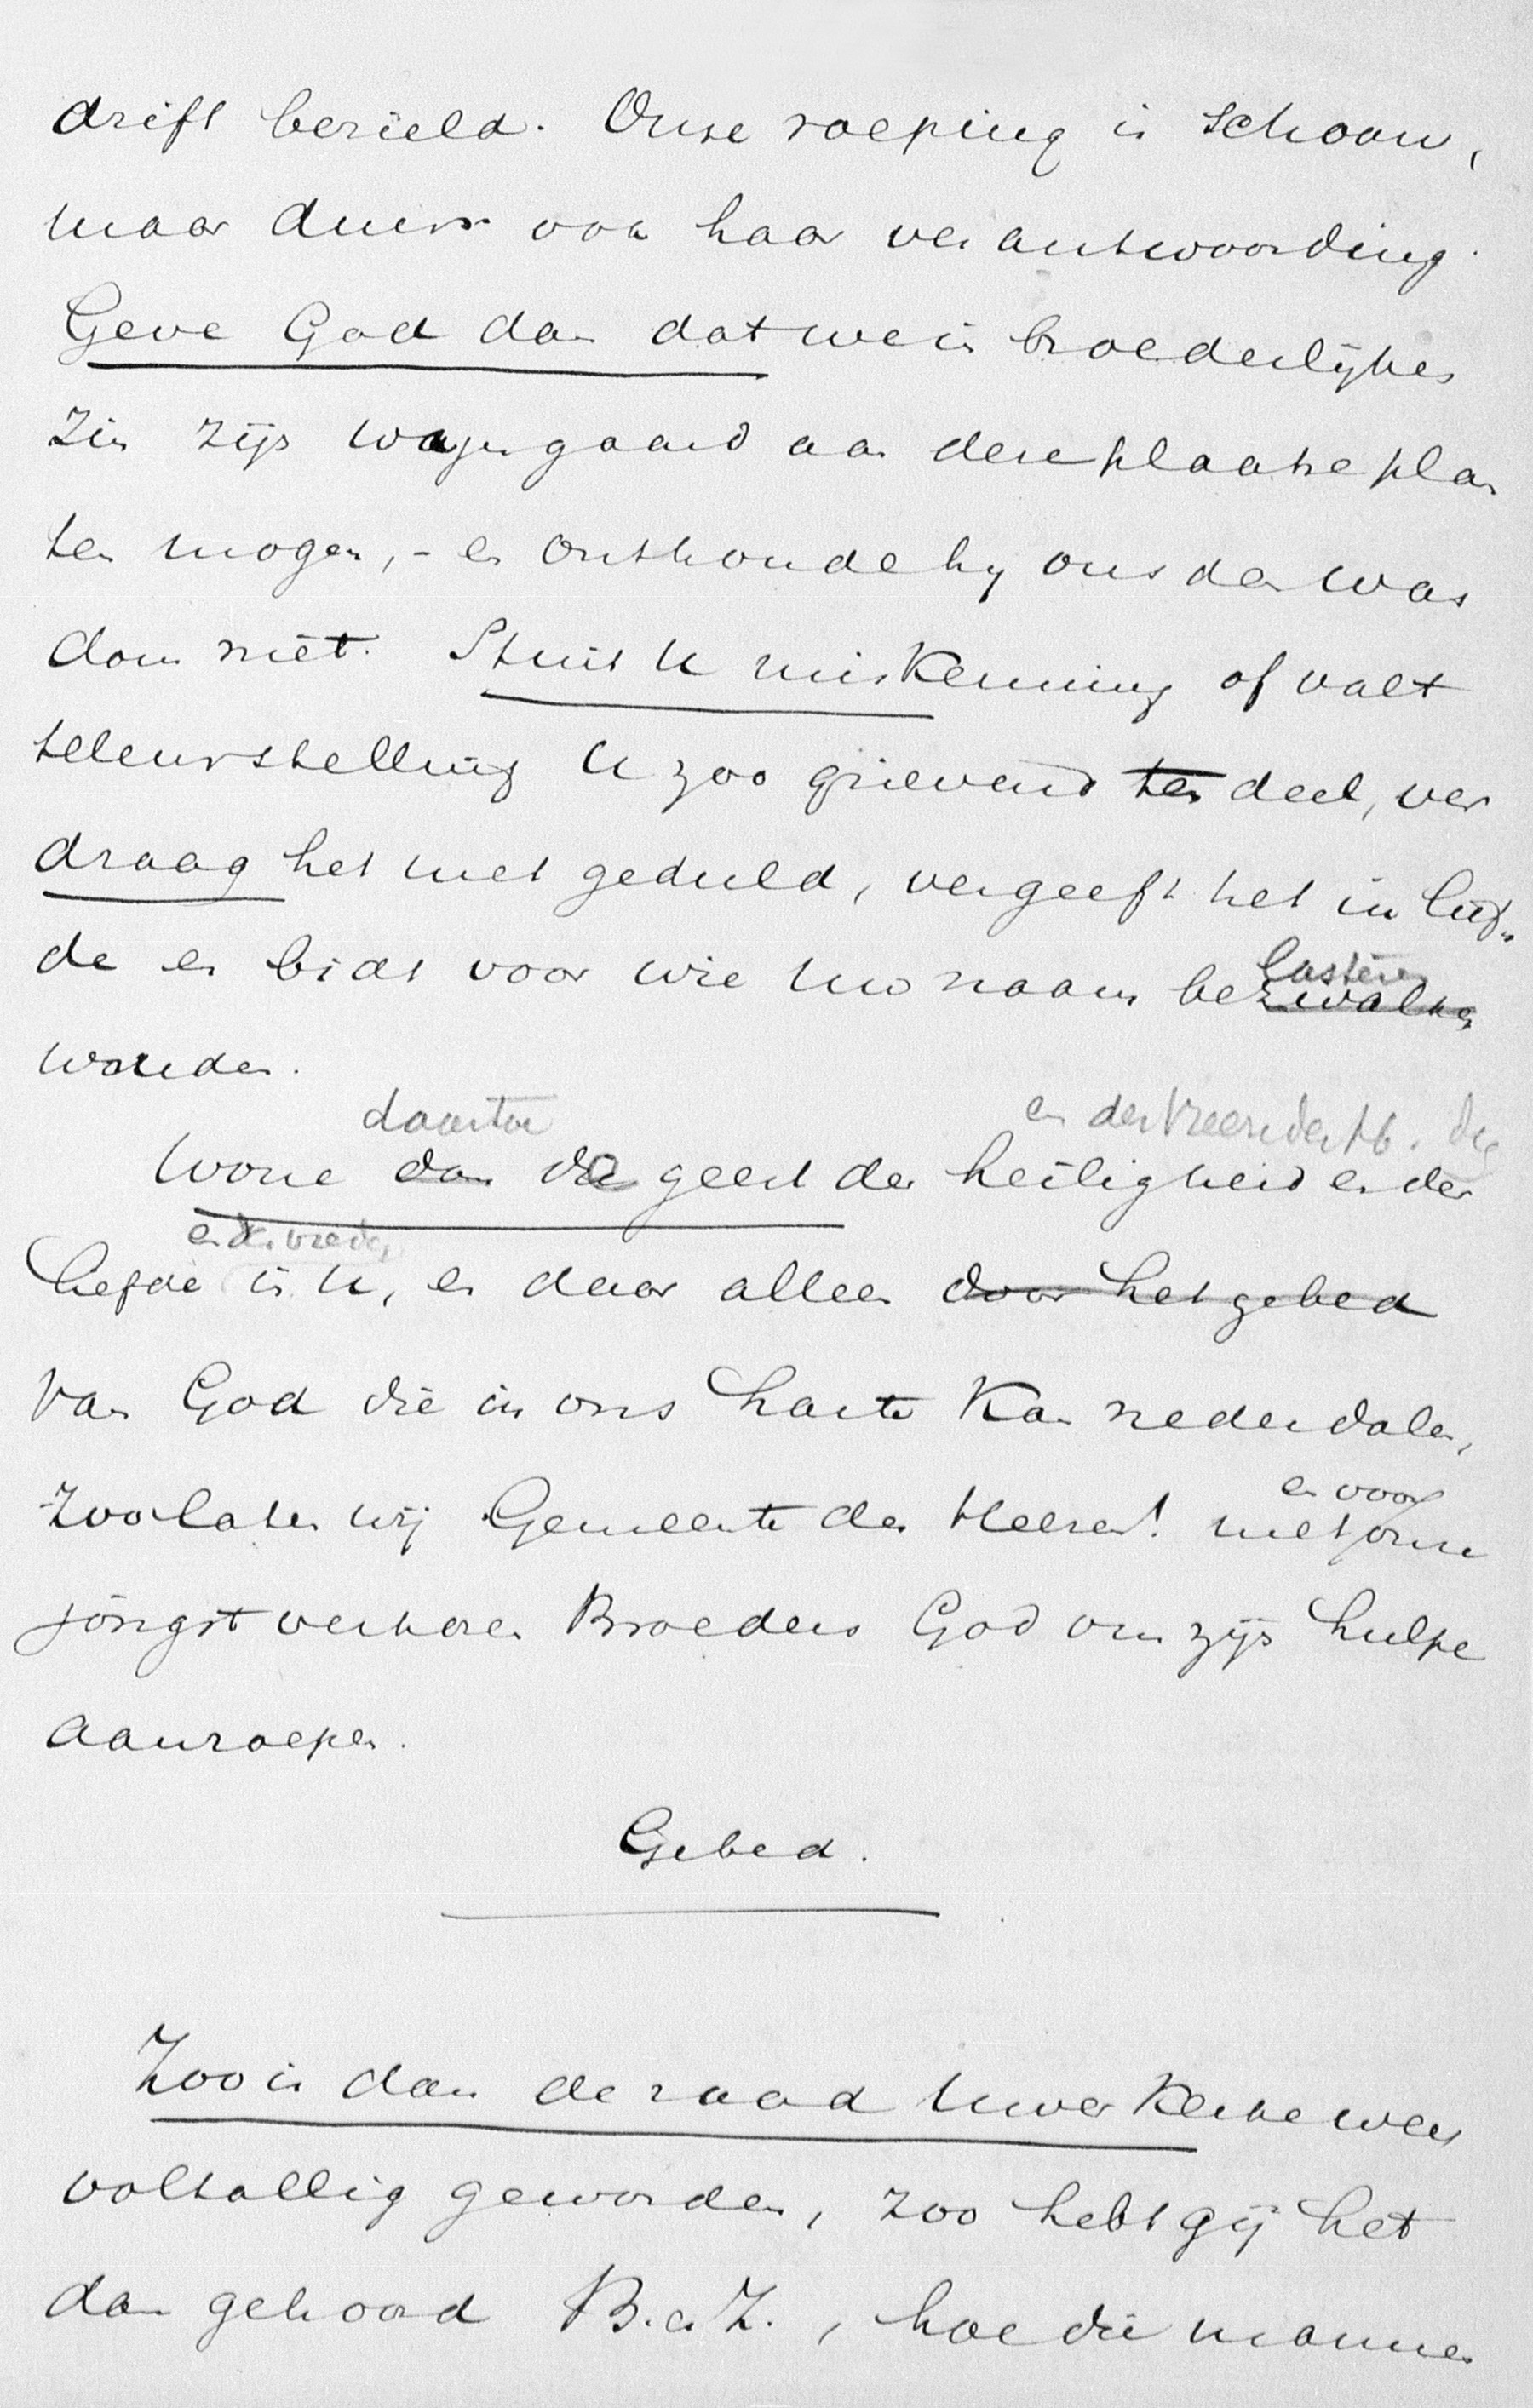 drift bezield. Onze roeping is schoon,
maar duur ook haar verantwoording.
Geve God dan dat we in broederlijken
zin zijn wijngaard aan deze plaatse plan
ten mogen, - en onthoude hij ons den was
dom niet. Stuit U miskenning of valt
teleurstelling U zoo grievend ten deel, ver
draag het met geduld, vergeeft het in lief
de en bidt voor wie Uw naam bezwalken
lasteren
wouden.
daartoe en der
Wone dan de geest der heiligheid en der
en der vrede
liefde in U, en daar alleen door het gebed
van God die in ons harte kan nederdalen,
en voor
zoo laten wij Gemeente des Heeren! met onze
jongst verkoren Broeders God om zijn hulpe
aanroepen.
Gebed.
Zoo is dan de raad Uwer Kerke weer
voltallig geworden, zoo hebt gij het
dan gehoord B. en Z., hoe die mannen